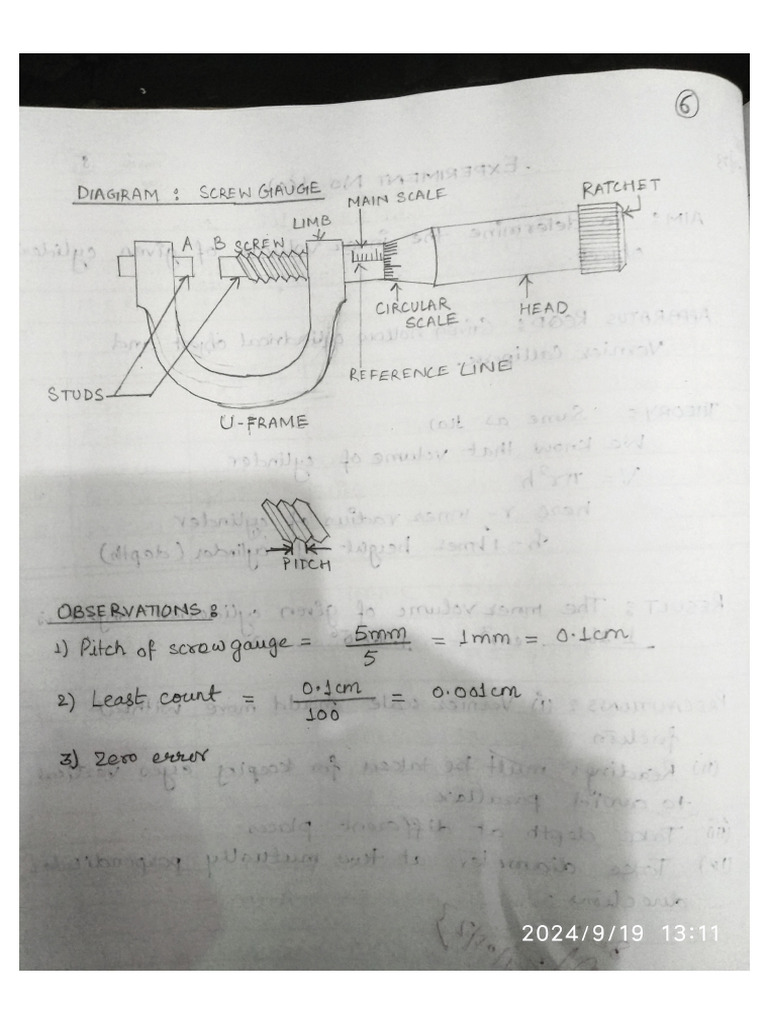 6
DIAGRAM : SCREW GAUGE
RATCHET
MAIN SCALE
LIMB
A B SCREW
CIRCULAR SCALE
HEAD
REFERENCE LINE
STUDS
U-FRAME
PITCH
OBSERVATIONS :
1) Pitch of screw gauge = 5mm/5 = 1mm = 0.1cm
2) Least count = 0.1cm/100 = 0.001cm
3) Zero error
2024/9/19 13:11